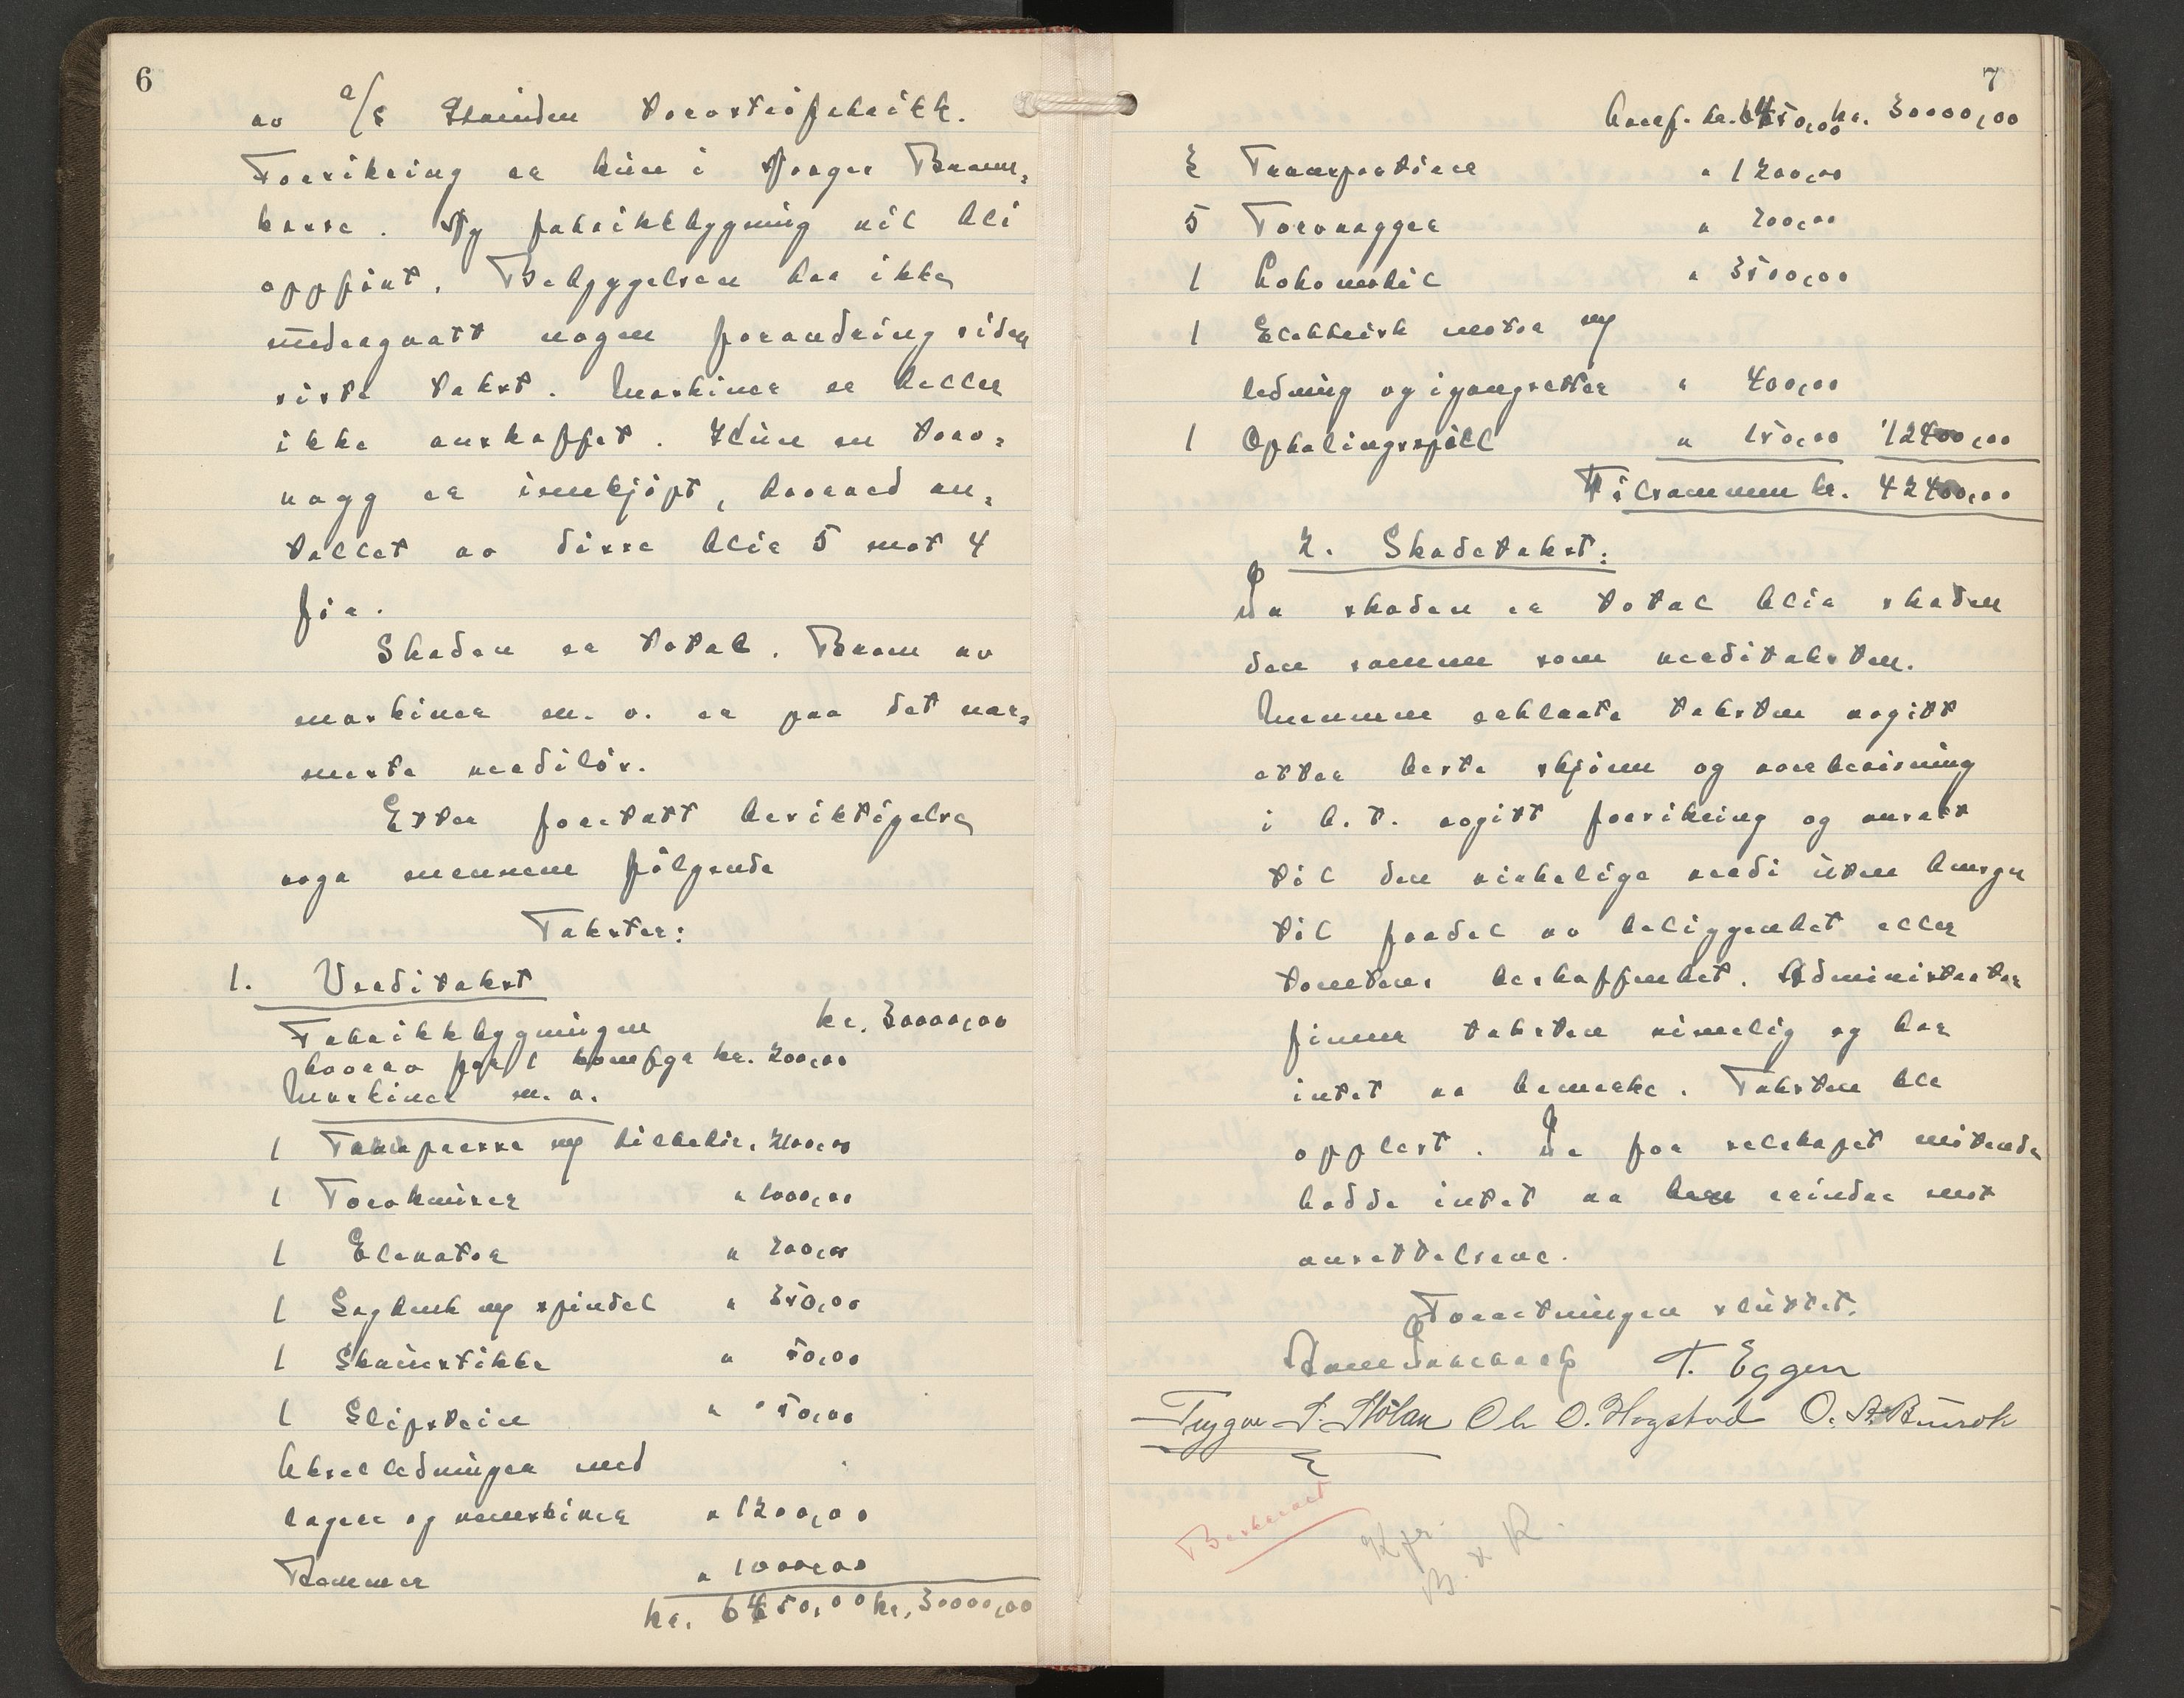 6
av a/s torvströfabrikk.
Forsikring er kun i Norges Brann-
kasse. Ny fabrikkbygning vil bli
oppfört. Bebyggelsen har ikke
undergaatt nogen forandring siden
siste takst. Maskiner er heller
ikke anskaffet. Kun en torv-
vogg er innkjöpt, hvorved an-
tallet av disse blir 5 mot 4
för.
Skaden er total. Brann av
maskiner m. v. er paa det nær-
meste verdilös.
Etter foretatt besiktigelse
avga mennene fölgende
Takster:
1. Verditakst
Fabrikkbygningen kr. 30000,00
hvorav for 1 komfyr kr. 200,00
Maskiner m. v.
1 Torvpresse m/ tilbehör " 2100,00
1 Torvkniver " 1000,00
1 Elevator " 200,00
1 Sagbenk m/ spindel " 350,00
1 Skruestikke " 50,00
1 Slipestein " 50,00
Akselledninger med
lagere og remskiver " 1200,00
Remmer " 1000,00
kr. 6450,00 kr. 30000,00
7
Overf. kr. 6450,00 kr. 30000,00
3 Transportörer " 1200,00
5 Torvvogger " 200,00
1 Lokomobil " 3500,00
1 Elektrisk motor m/
ledning og igangsetter " 400,00
1 Ophalingsspill " 150,00 12400,00
Tilsammen kr. 42400,00
2. Skadetakst:
Da skaden er total blir skaden
den samme som verditaksten.
Mennene erklærte taksten avgitt
etter beste skjönn og overbevisning
i h. t. avgitt forsikring og ansatt
til den virkelige verdi uten hensyn
til fordel av beliggenhet eller
tomtens beskaffenhet. Administrator
finner taksten rimelig og har
intet aa bemerke. Taksten ble
opplest. De for selskapet mötende
hadde intet aa erindre mot
ansettelsene.
Forretningen sluttet.
T. Eggen
Trygve S. Stölan Ole O. Hogstad O. A. Bursok
Beskrevet
Kfr.
B. & R.